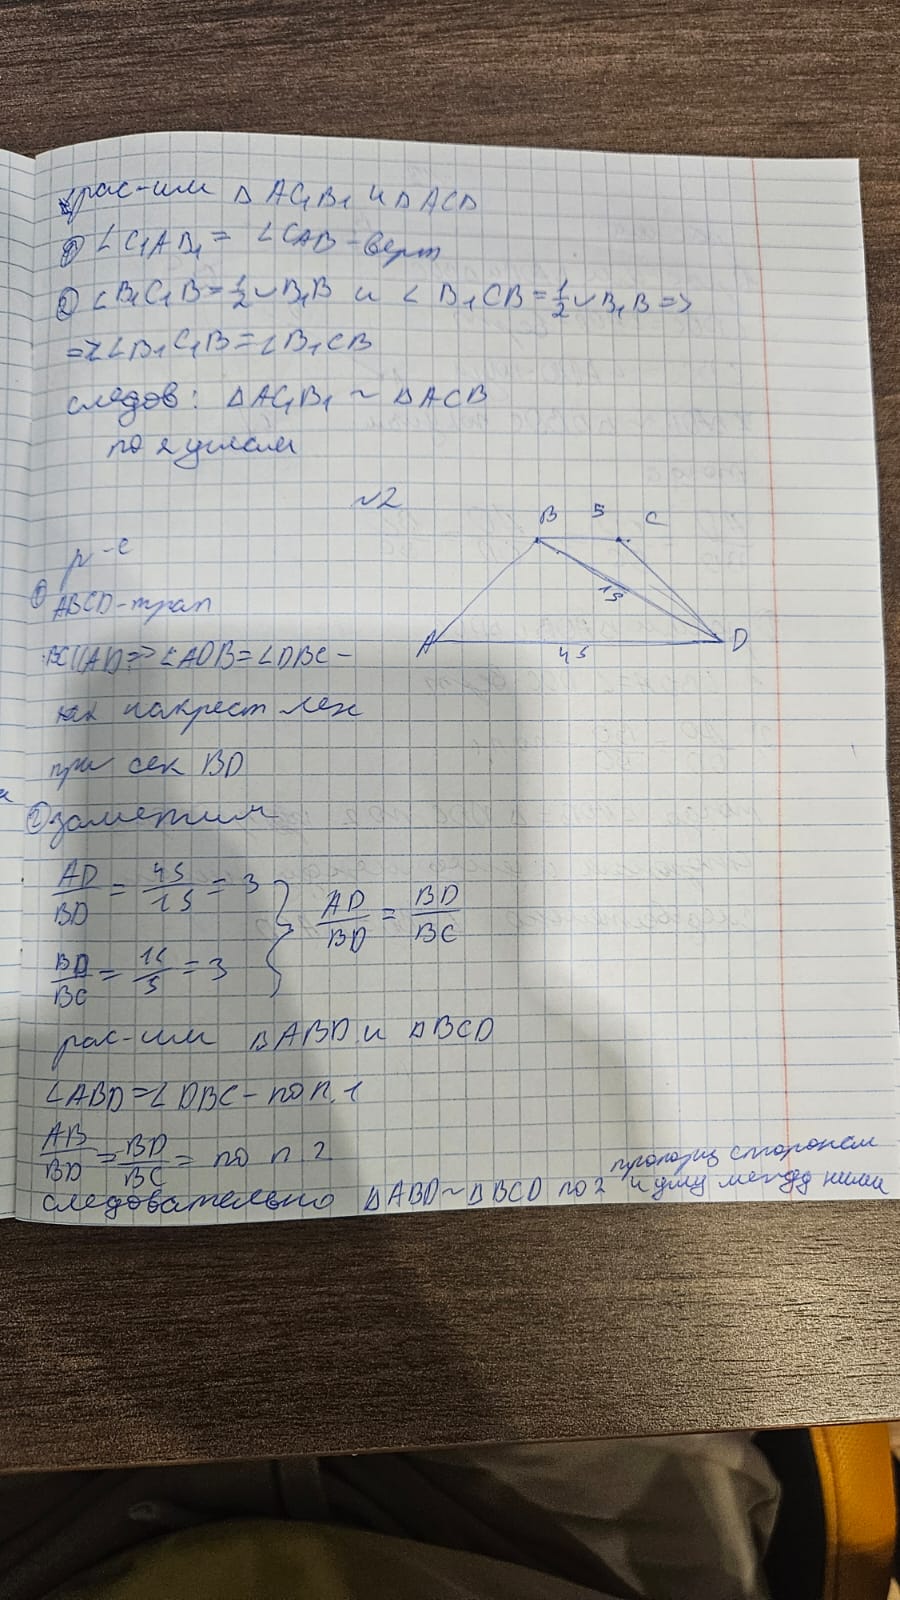 рас-им △ AC₁B₁ и △ ACD
① ∠C₁AB₁ = ∠CAB - верт
② ∠B₁C₁B = 1/2 ◡ B₁B и ∠ B₁CB = 1/2 ◡ B₁B =>
=> ∠B₁C₁B = ∠B₁CB
следов: △AC₁B₁ ~ △ACB
по 2 углам
~2
B 5 C
р-е
① ABCD-трап
15
A D
45
BC||AD => ∠ADB = ∠DBC -
как накрест леж
при сек BD
② заметим
AD/BD = 45/15 = 3 } AD/BD = BD/BC
BD/BC = 15/5 = 3
рас-им △ABD и △BCD
∠ABD = ∠DBC - по п.1
AB/BD = BD/BC = по п 2
следовательно △ABD ~ △BCD по 2 пропорц сторонам и углу между ними